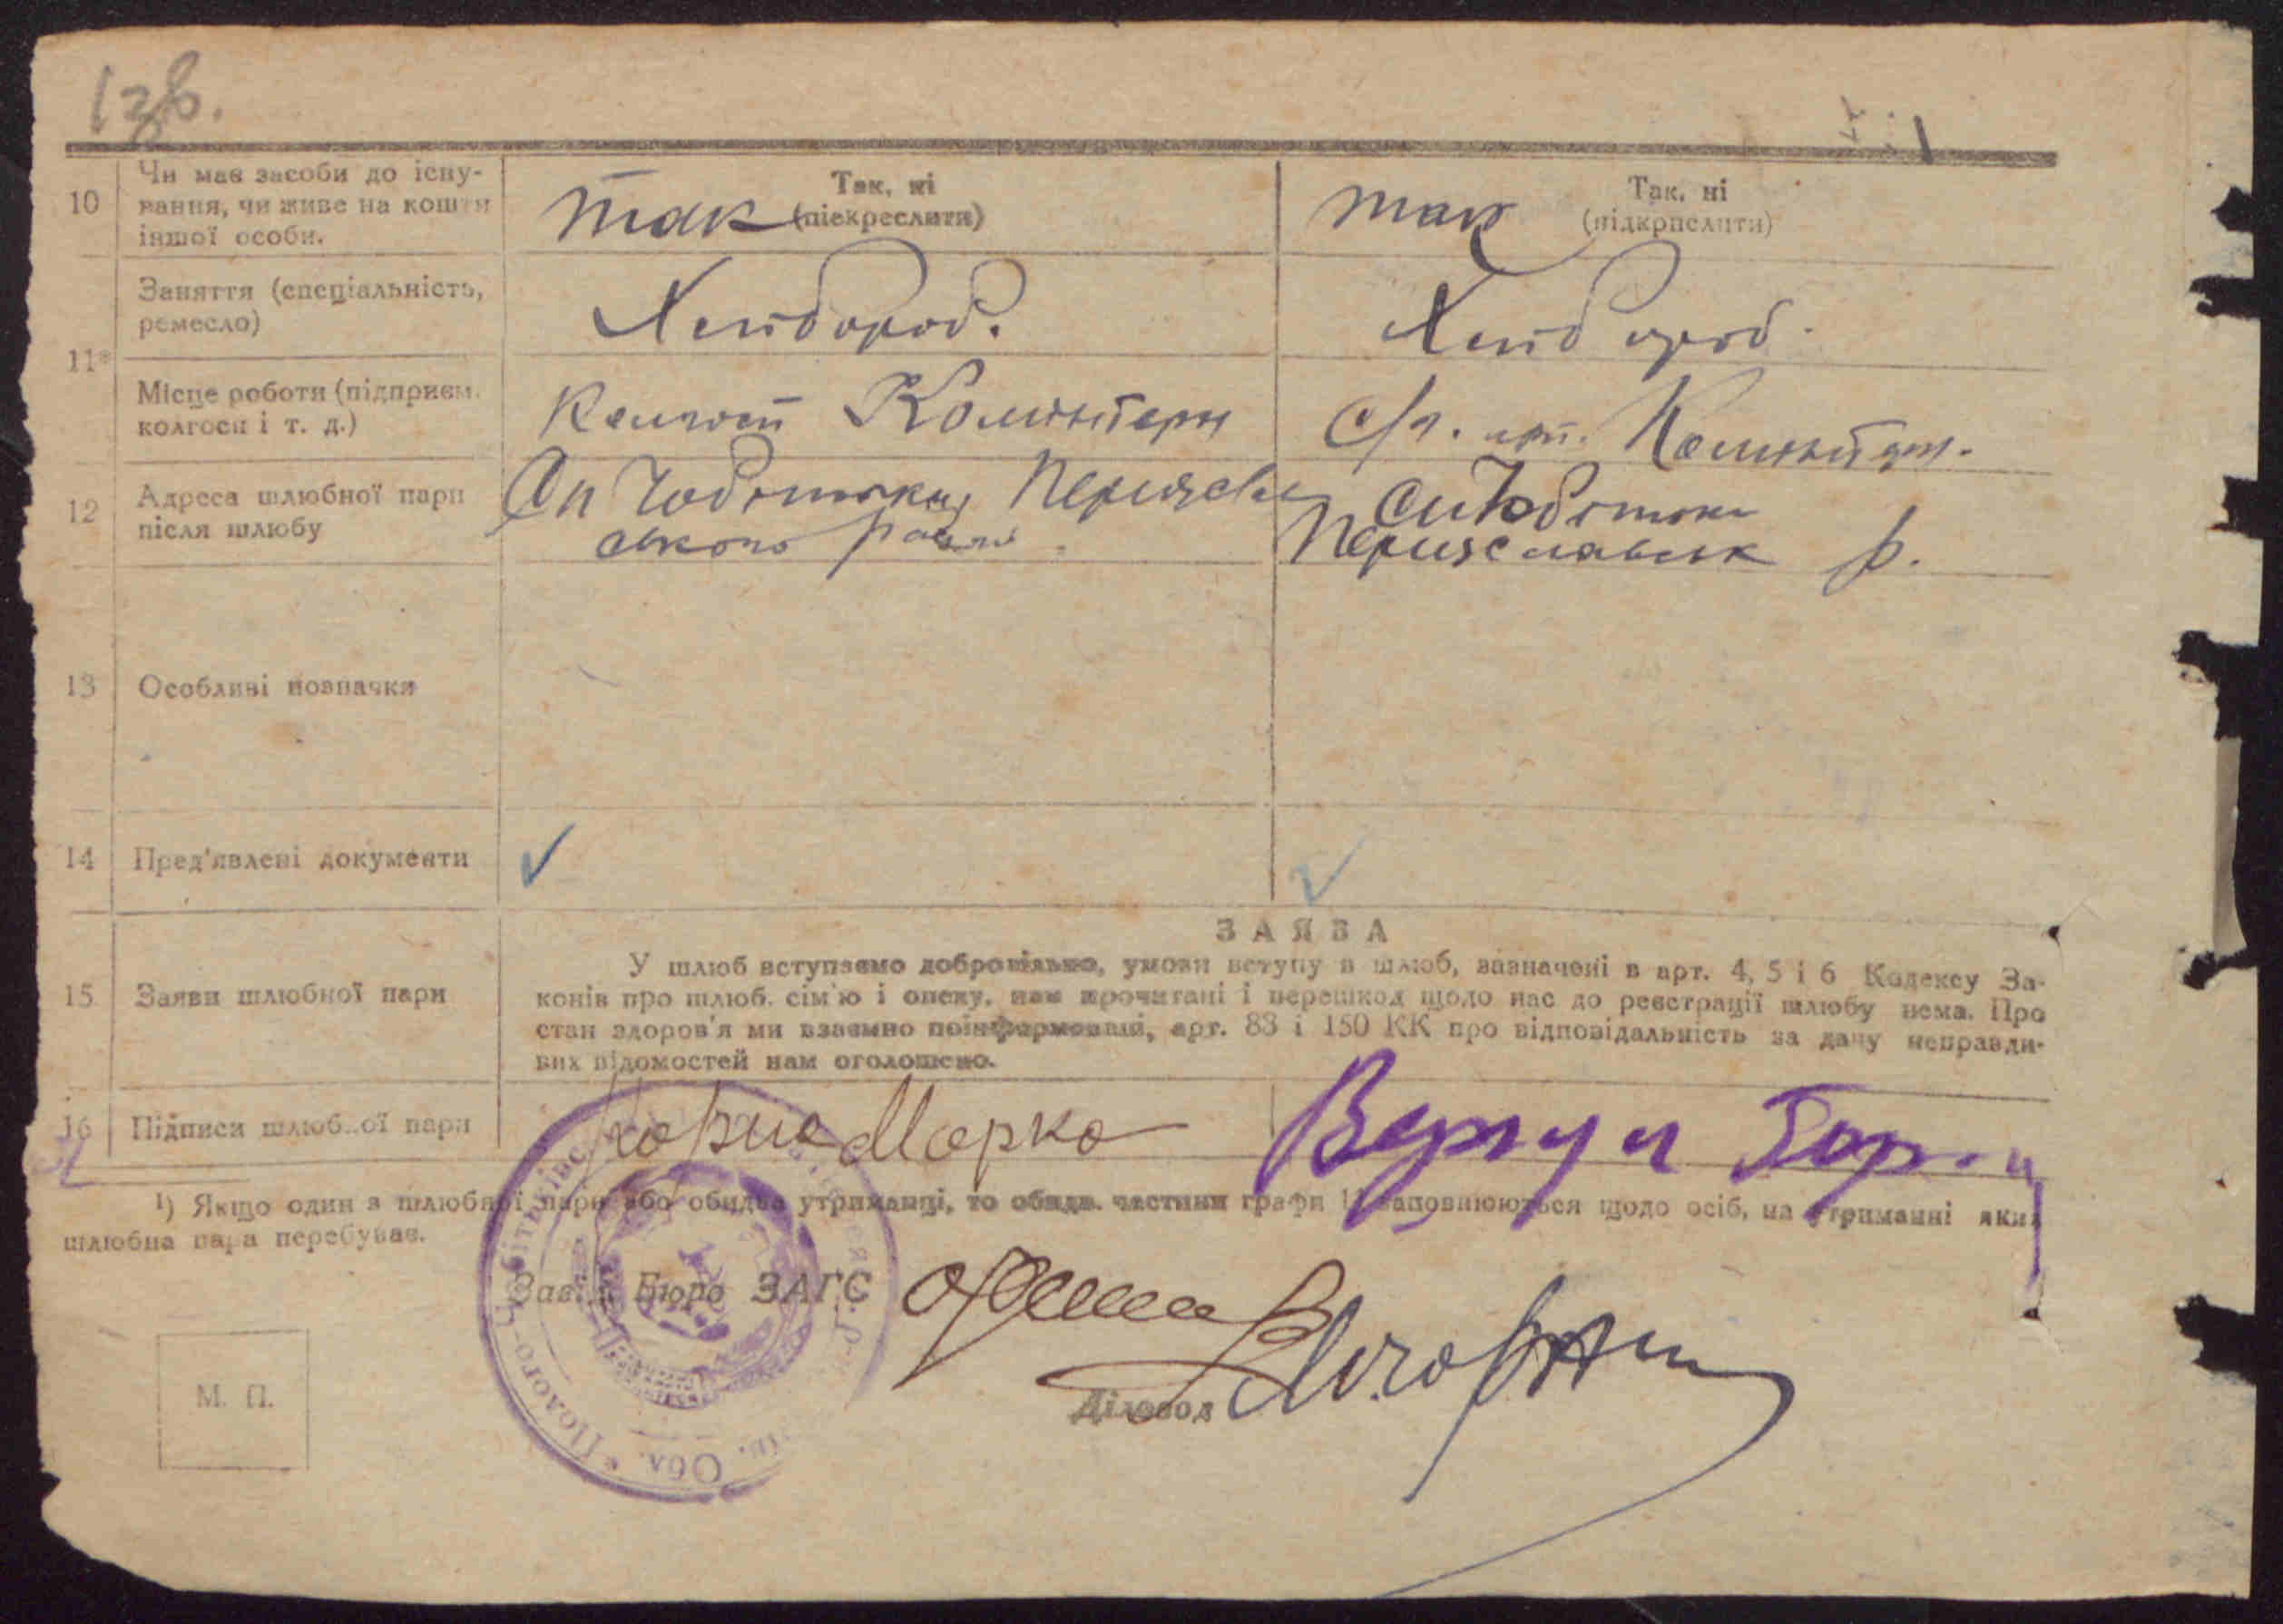 10
Чи має засоби до існу-
вання, чи живе на кошти
іншої особи.
Так, ні
так (підкреслити)
Так, ні
так (підкреслити)
11*
Заняття (спеціальність,
ремесло)
Хлібороб.
Хлібороб.
Місце роботи (підприєм.
колгосп і т. д.)
Комінтерн
С/г. арт. Комінтерн.
12
Адреса шлюбної пари
після шлюбу
13
Особливі позначки
14
Пред'явлені документи
15
Заяви шлюбної пари
ЗАЯВА
У шлюб вступаємо добровільно, умови вступу в шлюб, зазначені в арт. 4, 5 і 6 Кодексу За-
конів про шлюб, сім'ю і опеку, нам прочитані і перешкод щодо нас до реєстрації шлюбу нема. Про
стан здоров'я ми взаємно поінформовані, арт. 83 і 150 КК про відповідальність за дачу неправди-
вих відомостей нам оголошено.
16
Підписи шлюбної пари
Марко
Вергун
¹) Якщо один з шлюбної пари або обидва утриманці, то обидв. частини графи 11 заповнюються щодо осіб, на утриманні яких
шлюбна пара перебуває.
Зав. Бюро ЗАГС
Діловод
М. П.